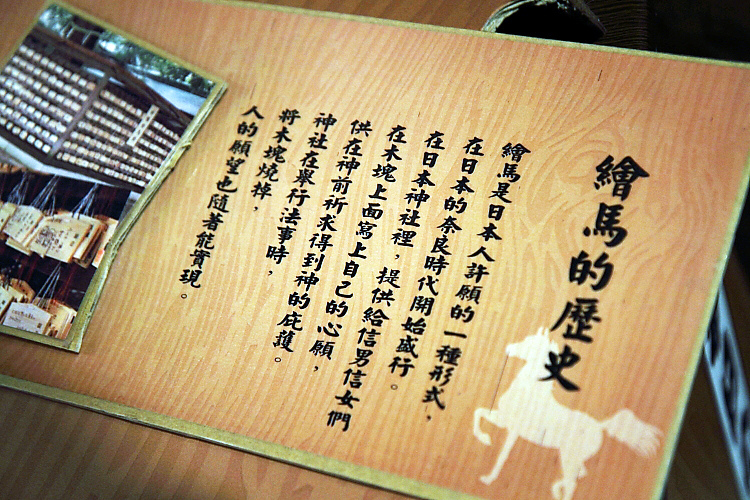 繪馬的歷史
繪馬是日本人許願的一種形式，
在日本的奈良時代開始盛行。
在日本神社裡，提供給信男信女們
在木塊上面寫上自己的心願，
供在神前祈求得到神的庇護。
神社在舉行法事時，
將木塊燒掉，
人的願望也隨著能實現。